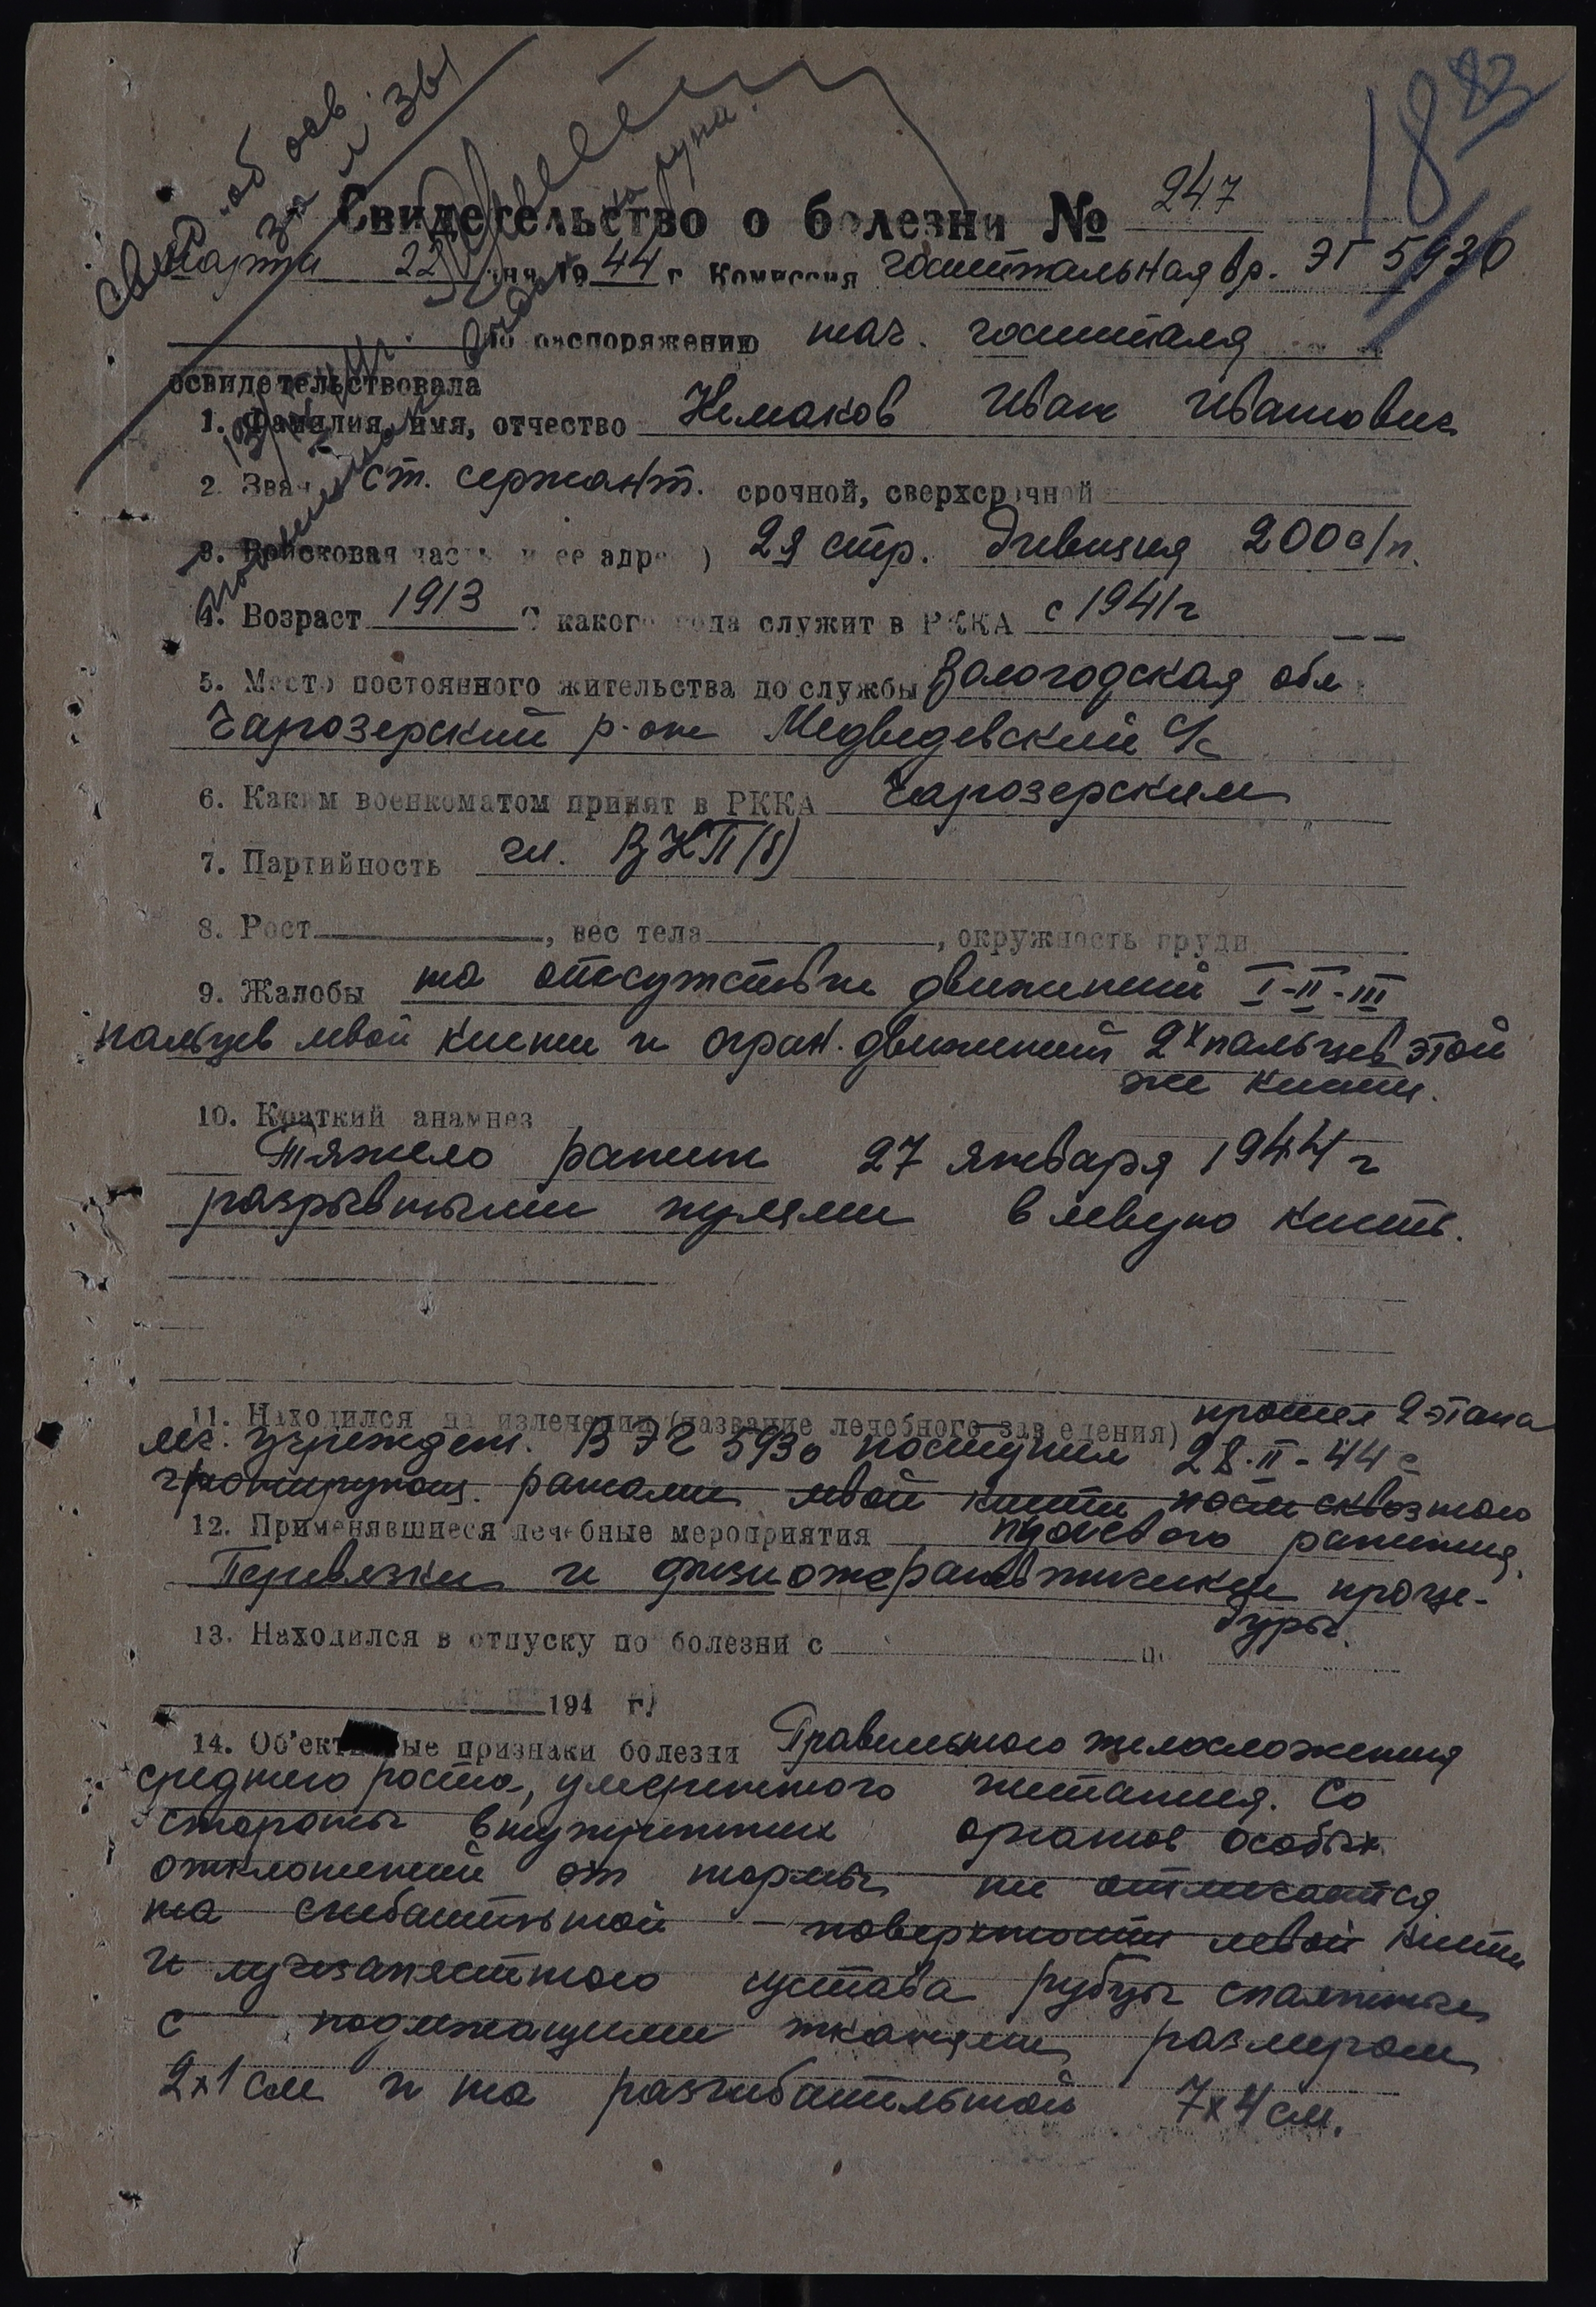 1883
Свид. об осв.
за № 361
Свидетельство о болезни № 247
Марта 22 дня 1944 г. Комиссия госпитальная вр. ЭГ 5930
По распоряжению нач. госпиталя
освидетельствовала
1. Фамилия, имя, отчество Немаков Иван Иванович
2. Зван ст. сержант. срочной, сверхсрочной
3. Войсковая часть и ее адрес) 29 стр. дивизия 200 с/п.
4. Возраст 1913 С какого года служит в РККА с 1941 г
5. Место постоянного жительства до службы Вологодская обл
Чарозерский р-он Медведевский с/с
6. Каким военкоматом принят в РККА Чарозерским
7. Партийность чл. ВКП(б)
8. Рост , вес тела , окружность груди
9. Жалобы на отсутствие движений I-II-III
пальцев левой кисти и огран. движений 2х пальцев этой
же кисти.
10. Краткий анамнез
Тяжело ранен 27 января 1944 г
разрывными пулями в левую кисть.
11. Находился на излечении (название лечебного заведения) прошел 2 этапа
леч. учрежден. В ЭГ 5930 поступил 28.II-44 с
гранулирующ. ранами левой кисти после сквозного
пулевого ранения.
12. Применявшиеся лечебные мероприятия
Перевязки и физиотерапевтические проце-
дуры.
13. Находился в отпуску по болезни с по
194 г.
14. Об'ективные признаки болезни Правильного телосложения
среднего роста, умеренного питания. Со
стороны внутренних органов особых
отклонений от нормы не отмечается
на сгибательной поверхности левой кисти
и лучезапястного сустава рубцы спаянные
с подлежащими тканями размером
2х1 см и на разгибательной 7х4 см.